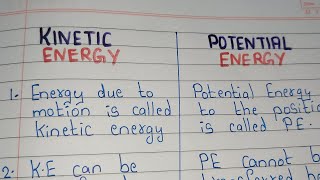 KINETIC
ENERGY
POTENTIAL
ENERGY
1. Energy due to
motion is called
kinetic energy
Potential Energy
to the positio
is called PE.
2. K.E can be
PE cannot b